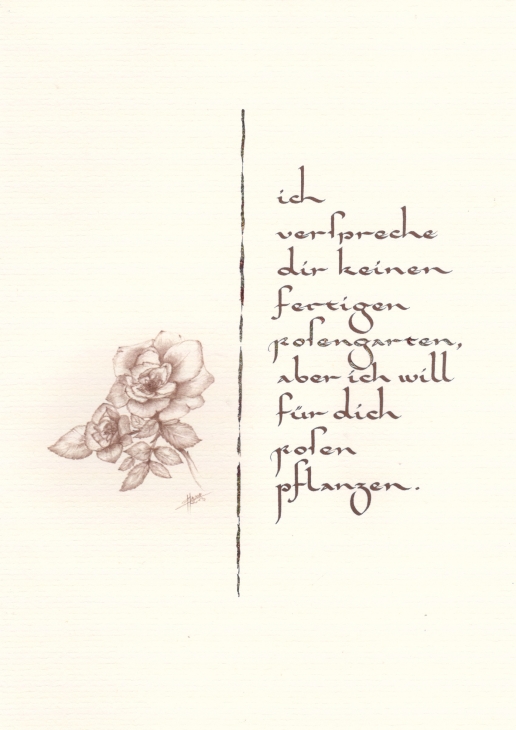 ich
verſpreche
dir keinen
fertigen
roſengarten,
aber ich will
für dich
roſen
pflanzen.